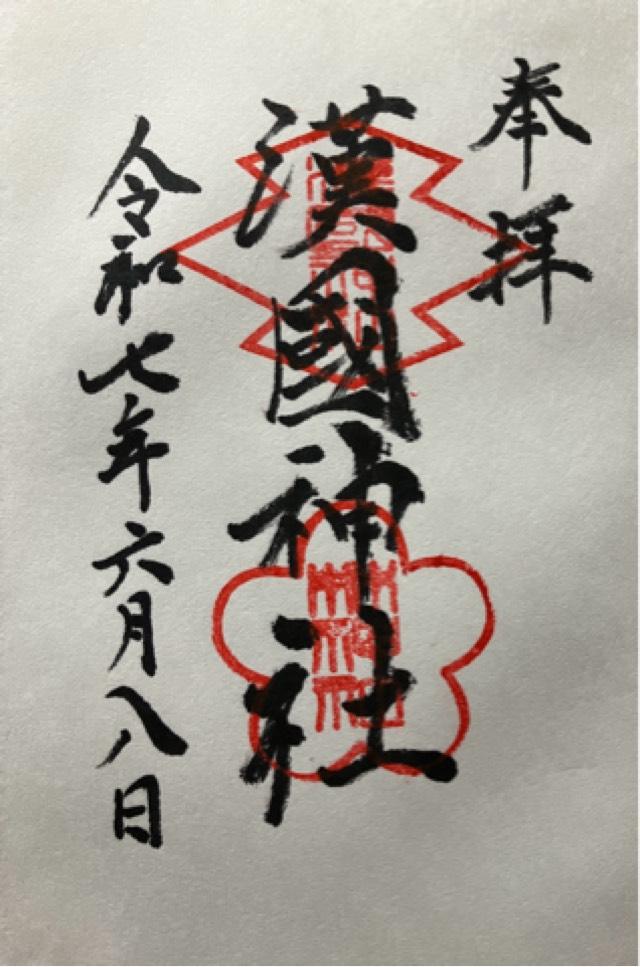 奉拝
漢國神社
令和七年六月八日